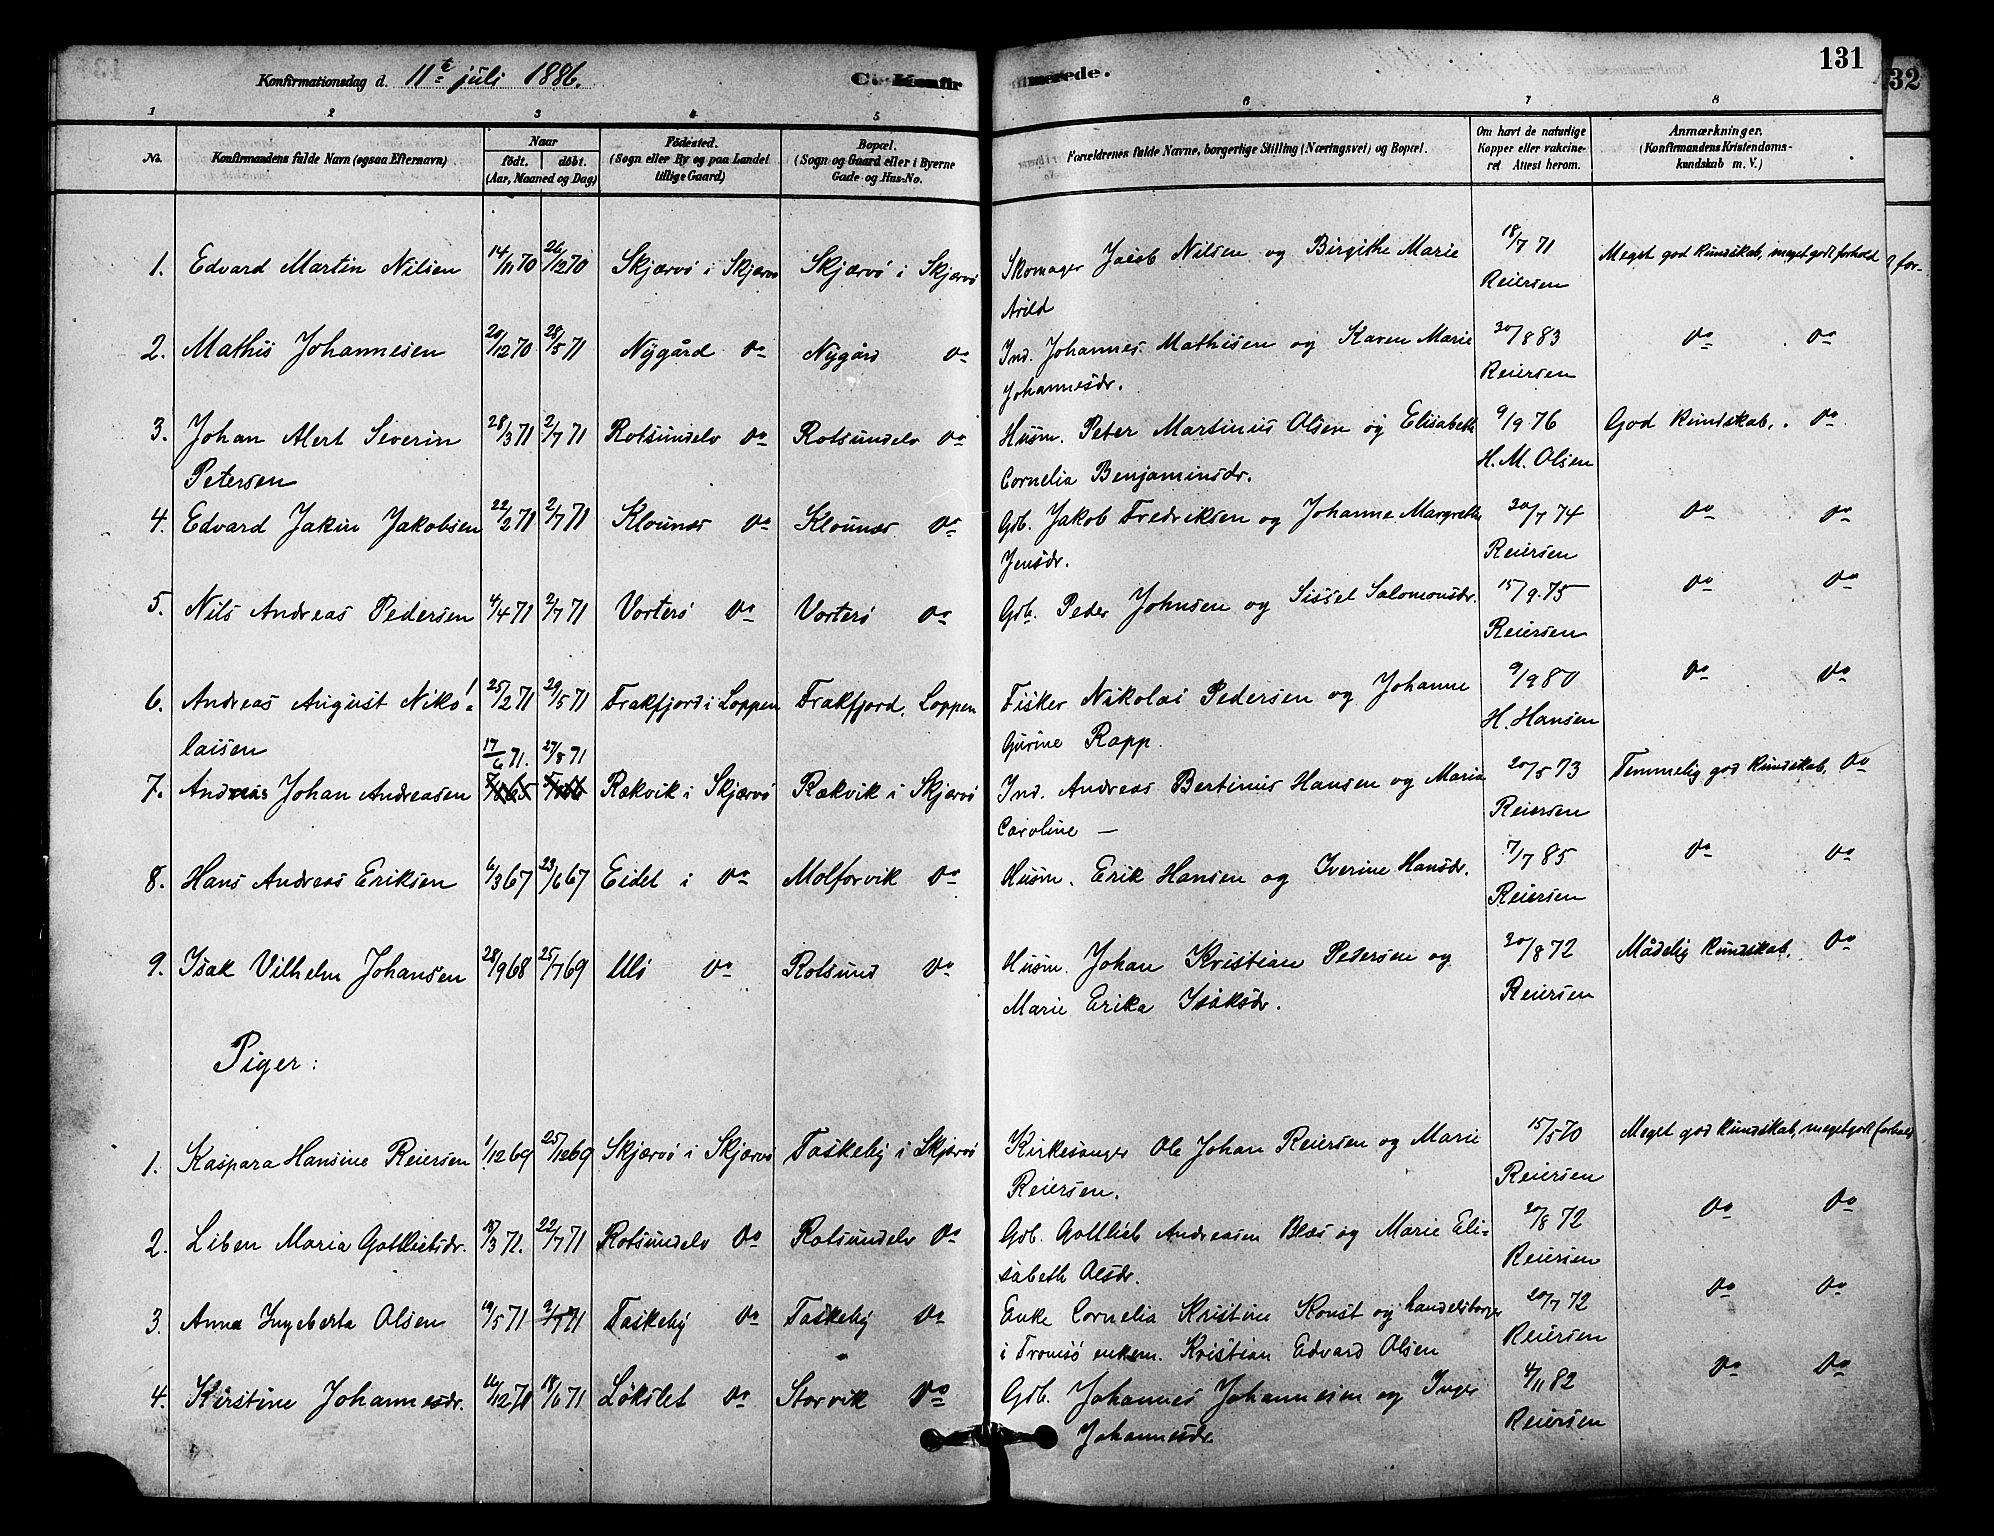 Konfirmationsdag d. 11te juli 1886. C. Konfirmerede. 131
32
1 2 3 4 5 6 7 8
No. Konfirmandens fulde Navn (ogsaa Efternavn). Naar født. døbt. (Aar, Maaned og Dag) Fødested. (Sogn eller By og paa Landet tillige Gaard) Bopæl. (Sogn og Gaard eller i Byerne Gade- og Hus-No. Forældrenes fulde Navne, borgerlige Stilling (Næringsvei) og Bopæl. Om havt de naturlige Kopper eller vakcineret Attest herom. Anmærkninger. (Konfirmandens Kristendomskundskab m. V.)
1. Edvard Martin Nilsen 14/11 70 26/12 70 Skjærvö i Skjærvö Skjærvö i Skjærvö Skomager Jacob Nilsen og Birgithe Marie 18/7 71 Meget god kundskab, meget godt forhold
Arild Reiersen
2. Mathis Johannesen 20/12 70 28/5 71 Nygård do Nygård do Ind. Johannes Mathisen og Karen Marie 30/8 83 do do
Johannesdr. Reiersen
3. Johan Alert Severin 28/3 71 2/7 71 Rotsundelv do Rotsundelv do Husm. Peter Martinus Olsen og Elisabeth 9/9 76 God kundskab, do
Petersen Cornelia Benjaminsdr. H. M. Olsen
4. Edvard Jakin Jakobsen 22/2 71 2/7 71 Klounæs do Klounæs do Gb. Jakob Fredriksen og Johanne Margrethe 30/7 74 do do
Jensdr. Reiersen
5. Nils Andreas Pedersen 4/4 71 2/7 71 Vorterö do Vorterö do Gb. Peder Johnsen og Sissel Salomonsdr. 15/9 75 do do
Reiersen
6. Andreas August Niko- 25/2 71 29/5 71 Frakfjord i Loppen Frakfjord, Loppen Fisker Nikolai Pedersen og Johanne 9/9 80 do do
laisen Gurine Rapp. H. Hansen
17/6 71. 27/8 71
7. Andreas Johan Andreasen Rækvik i Skjærvö Rækvik i Skjærvö Ind. Andreas Bertinus Hansen og Maria 20/5 73 Temmelig god kundskab, do
Caroline — Reiersen
8. Hans Andreas Eriksen 6/3 67 23/6 67 Eidet i do Molforvik do Husm. Erik Hansen og Iverine Hansdr. 7/7 85 do do
Reiersen
9. Isak Vilhelm Johansen 28/9 68 25/7 69 Ulö do Rotsund do Husm. Johan Kristian Pedersen og 20/8 72 Mådelig kundskab, do
Marie Erika Isaksdr. Reiersen
Piger:
1. Kaspara Hansine Reiersen 1/12 69 25/12 69 Skjærvö i Skjærvö Taskeby i Skjærvö Kirkesanger Ole Johan Reiersen og Marie 15/5 70 Meget god kundskab, meget godt forhold
Reiersen. Reiersen
2. Liben Maria Gottliebsdr. 18/3 71. 22/7 71 Rotsundelv do Rotsundelv do Gb. Gottlieb Andreasen Blæs og Marie Eli- 20/8 72 do do
sabeth Olsdr. Reiersen
3. Anna Ingeberta Olsen 19/5 71 9/7 71 Taskeby do Taskeby do Enke Cornelia Kristine Konst og handelsborger 20/7 72 do do
i Tromsö enkem. Kristian Edvard Olsen Reiersen
4. Kirstine Johannesdr. 16/12 70 18/6 71 Löksletdo Storvik do Gb. Johannes Johannesen og Inger 4/11 82 do do
Johannesdr. Reiersen